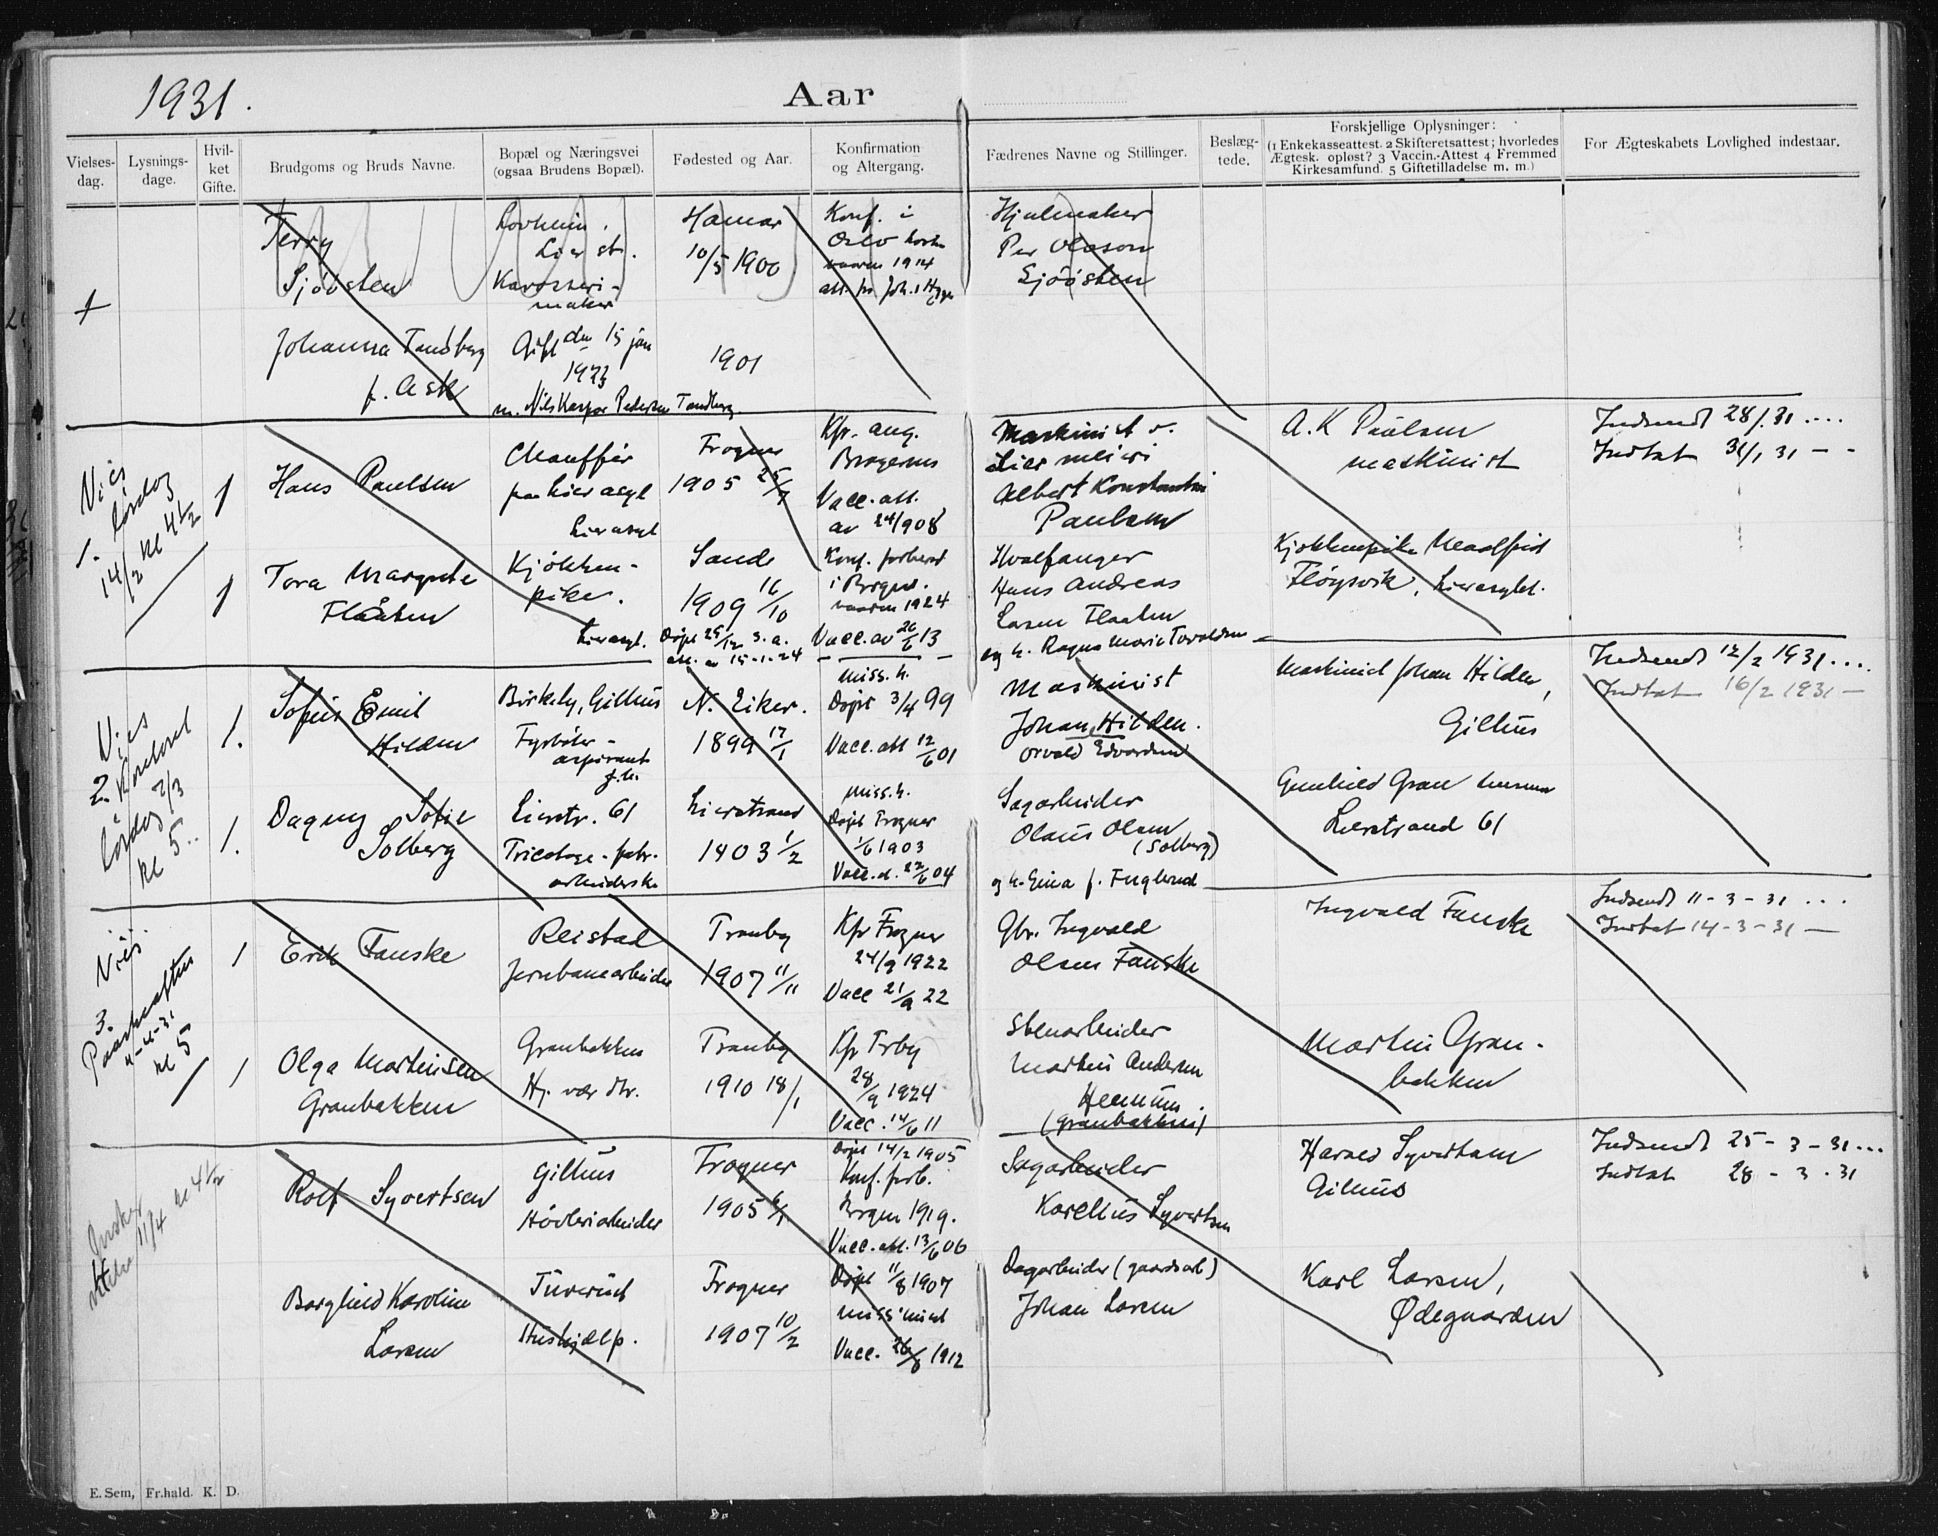 1931.
Aar
Vielses-
dag.
Lysnings-
dage.
Hvil-
ket
Gifte.
Brudgoms og Bruds Navne.
Bopæl og Næringsvei
(ogsaa Brudens Bopæl).
Fødested og Aar.
Konfirmation
og Altergang.
Fædrenes Navne og Stillinger.
Beslæg-
tede.
Forskjellige Oplysninger:
(1 Enkekasseattest. 2 Skifteretsattest; hvorledes
Ægtesk. opløst? 3 Vaccin.-Attest 4 Fremmed
Kirkesamfund. 5 Giftetilladelse m. m.)
For Ægteskabets Lovlighed indestaar.
Sjöösten
Lier st.
Karosseri-
maker
Hamar
10/5 1900
Konf. i
Oslo
vaaren 1914
Hjulmaker
Per Olsson
Sjöösten
Johanna Tandberg
f. Ask
Gift den 15 jan
m. Nils Kaspar Pedersen Tandberg
1901
Viet
1. Lørdag
14/2 kl 4 1/2
1
Hans Paulsen
Chauffør
paa Lier asyl
Lierasyl
Frogner
1905 25/7
Kfr. aug.
Bragernes
Vacc. att.
av 24/908
Maskinist v.
Lier meieri
Albert Konstantin
Paulsen
A. K Paulsen
maskinist
Indsendt 28/1 31 ....
Indtat 31/1 31 - -
1
Tora Margrete
Flåten
Kjökken-
pike.
Lierasyl.
Sande
1909 16/10
att. av 15-1-24
Konf. forbered
vaaren 1924
Vacc. av 26/6 13
Hvalfanger
Hans Andreas
Larsen Flaaten
og h. Ragna Marie Torvaldsen
Kjökkenpike
Lierasylet.
Viet
2. Kontoret
Lørdag 7/3
kl 5..
1.
Sofus Emil
Hilden
Birkely, Gilhus
Fyrböter-
aspirant
N. Eiker.
1899 17/1
miss. h.
Døpt 3/4 99
Vacc. att 12/6 01
Maskinist
Johan Hilden.
Orvald Edvardsen
Maskinist Johan Hilden,
Gilhus
Indsendt 12/2 1931....
Indtat 16/2 1931 -
1.
Dagny Sofie
Solberg
Lierstr. 61
Tricotage-fabr.
arbeiderske
Lierstrand
1903 1/2
miss. h.
Døpt Frogner
1/6 1903
Vacc. a. 22/6 04
Sagarbeider
Olaus Olsen
(Solberg)
og h. Gina f. Fuglerud
Gunhild Gran
Lierstrand 61
Viet.
3.
Paaskeaften
4-4-31
kl 5
1
Erik Fauske
Reistad
Jernbanearbeider
Tranby
1907 11/11
Kfr Frogner
24/9 1922
Vacc 21/9 22
Gbr. Ingvald
Olsen Fauske
Ingvald Fauske
Indsendt 11-3-31 ...
Indtat 14-3-31 -
1
Olga Martinsen
Granbakken
Granbakken
Hj. vær. dtr.
Tranby
1910 18/1
Kfr Trby
28/9 1924
Vacc. 14/6 11
Stenarbeider
Martin Andersen
(Granbakken)
Martin Gran-
bakken
kl 4 1/2
11/4
Rolf Syvertsen
Gilhus
Høvleriarbeider
Frogner
1905 6/1
Døpt 14/2 1905
Konf. forb.
Bragn 1919.
Vacc. att. 13/6 06
Sagarbeider
Karelius Syvertsen
Syvertsen
Gilhus
Indsendt 25-3-31...
Indtat 28-3-31
Borghild Karoline
Larsen
Tuverud
Hushjælp.
Frogner
1907 10/2
Døpt 11/8 1907
Vacc. 26/8 1912
Dagarbeider (gaardsarb)
Johan Larsen
Karl Larsen,
Ødegaarden
E. Sem, Fr.hald. K. D.